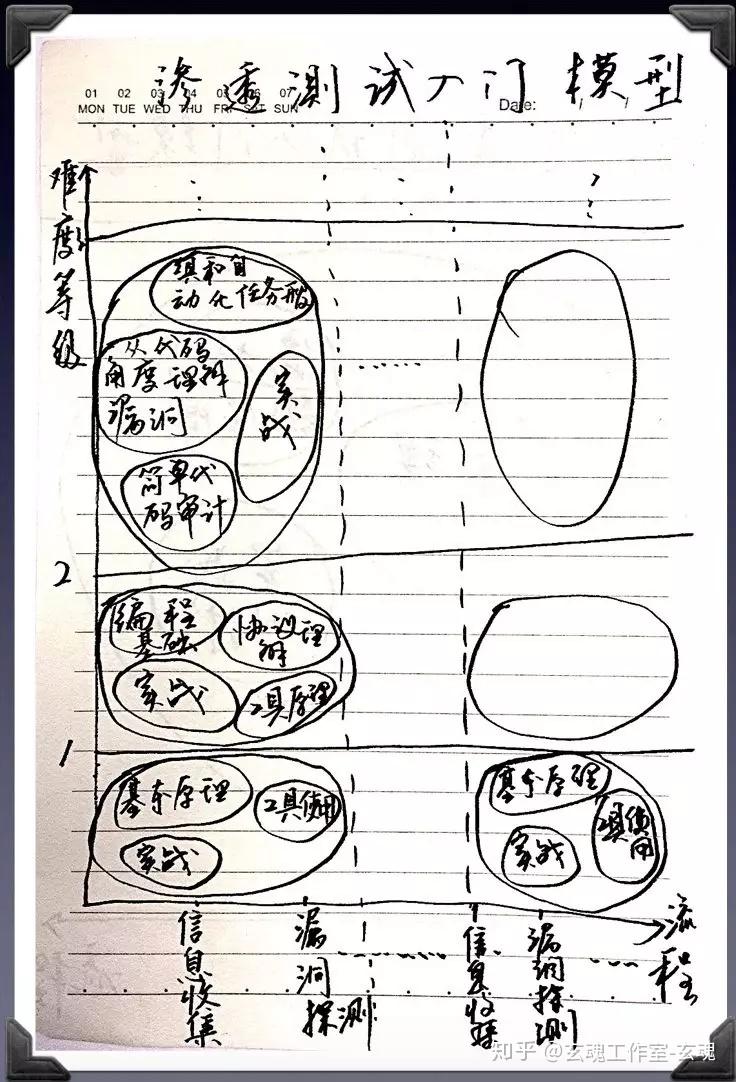 渗透测试入门模型
01 02 03 04 05 06 07
MON TUE WED THU FRI SAT SUN
Date: / /
难度等级
填和自
动化任务
从代码
角度理解
漏洞
实战
简单代
码审计
2
编程
基础
协议理
解
实战
工具原理
1
基本原理
工具使用
实战
基本原理
工具使
用
实战
信息收集
漏洞探测
信息收集
漏洞探测
流程
知乎 @玄魂工作室-玄魂